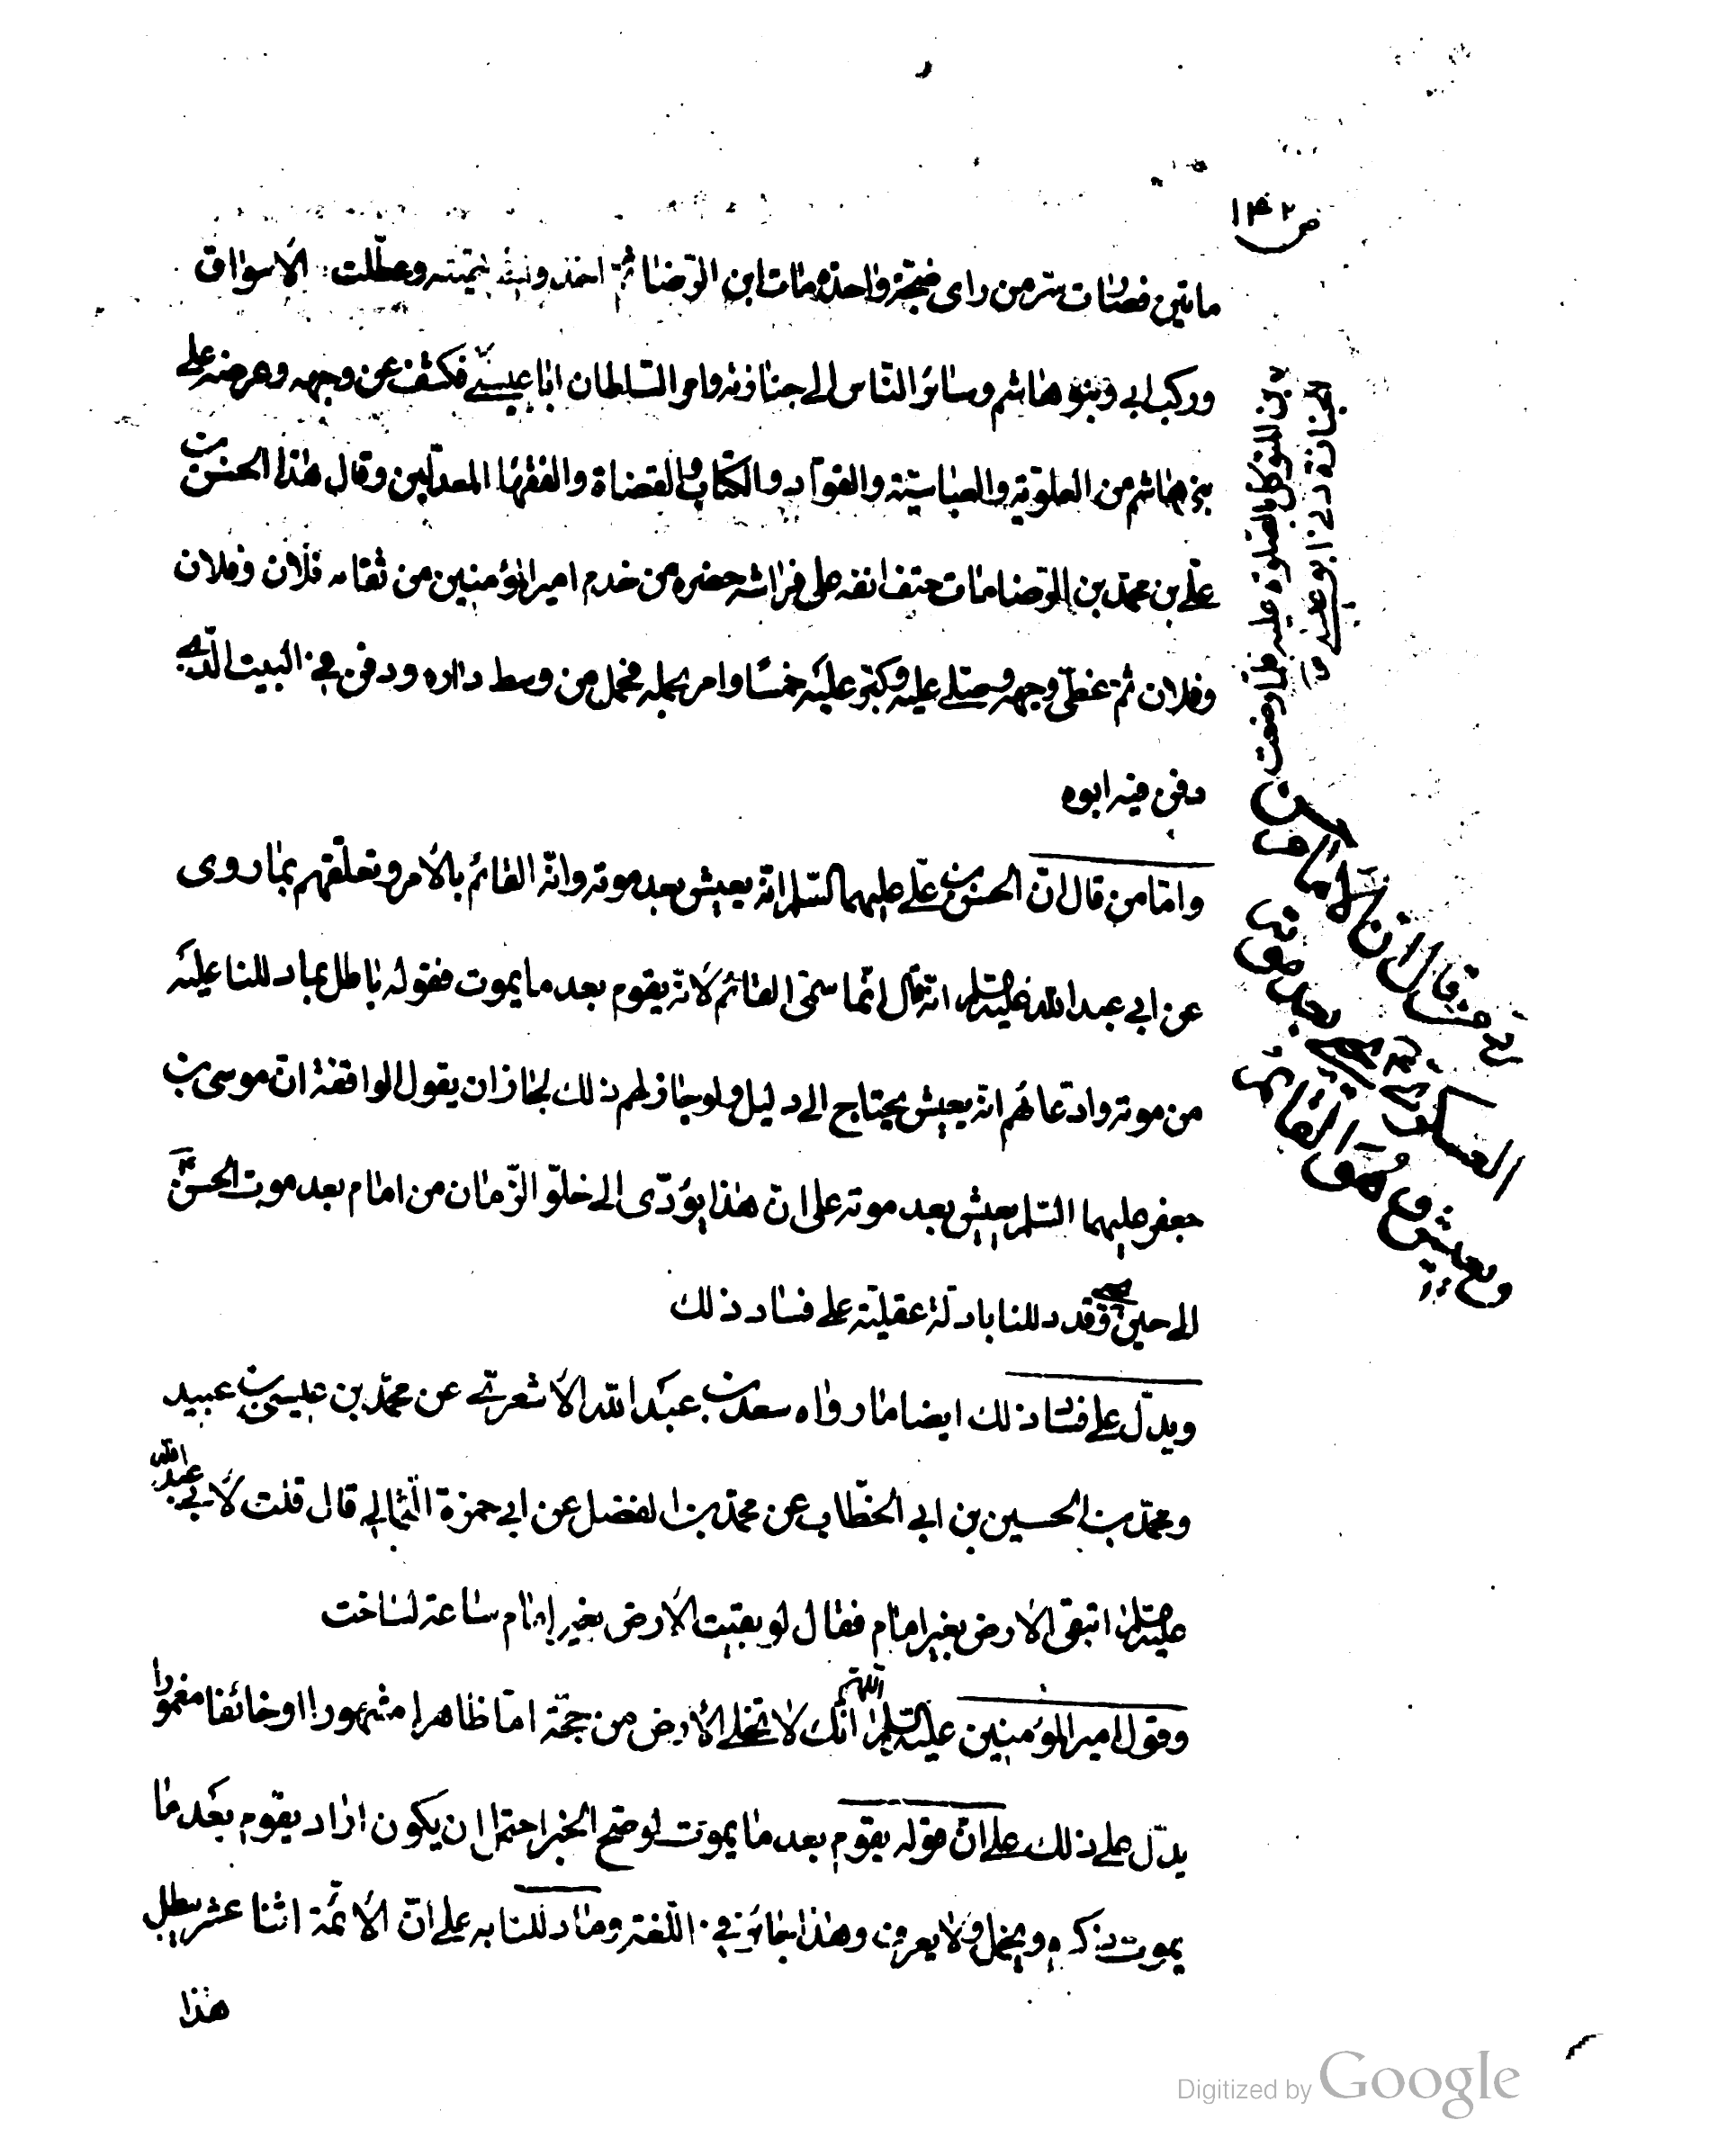 ص ١٤٢
ماتين فصارت سر من رأى ضجة واحدة مات ابن الرضا ثم اخذوا في تهيئته وعطلت الاسواق
وركب ابي وبنو هاشم وسائر الناس الى جنازته وامر السلطان ابا عيسى فكشف عن وجهه وعرضه على
بني هاشم من العلوية والعباسية والقواد والكتاب والقضاة والفقهاء المعدلين وقال هذا الحسن بن
علي بن محمد بن الرضا مات حتف انفه على فراشه حضره من خدم امير المؤمنين من ثقاته فلان وفلان
وفلان ثم غطى وجهه وصلى عليه وكبر عليه خمسا وامر بحمله فحمل من وسط داره ودفن في البيت الذي
دفن فيه ابوه
وامّا من قال انّ الحسن بن علي عليهما السلم انه يعيش بعد موته وانه القائم بالامر وتعلقهم بما روى
عن ابي عبد الله عليه السلم انه قال انما سمى القائم لانه يقوم بعد ما يموت فقوله باطل بما دللنا عليه
من موته وادعائهم انه يعيش يحتاج الى دليل ولو جاز لهم ذلك لجاز ان يقول الواقفة ان موسى بن
جعفر عليهما السلم يعيش بعد موته على ان هذا يؤدى الى خلو الزمان من امام بعد موت الحسن
الى حين وقد دللنا بادلة عقلية على فساد ذلك
ويدل على فساد ذلك ايضا ما رواه سعد بن عبد الله الاشعري عن محمد بن عيسى بن عبيد
ومحمد بن الحسين بن ابي الخطاب عن محمد بن الفضل عن ابي حمزة الثمالي قال قلت لابي عبد الله
عليه السلم اتبقى الارض بغير امام فقال لو بقيت الارض بغير امام ساعة لساخت
وقول امير المؤمنين عليه السلم اللهم انك لا تخلى الارض من حجة اما ظاهرا مشهورا او خائفا مغمورا
يدل على ذلك على ان قوله يقوم بعد ما يموت لو صح الخبر احتمل ان يكون اراد يقوم بعد ما
يموت ذكره ويخمل ولا يعرف وهذا جائز في اللغة وما دللنا به على ان الائمة اثنا عشر يبطل
هذا
بن المتوكل بالصلوة عليه فلما وضعت
الجنازة دنى ابو عيسى
من قال ان الحسن
العسكري مات
يعيش بعد موته
وهو القائم
Digitized by Google